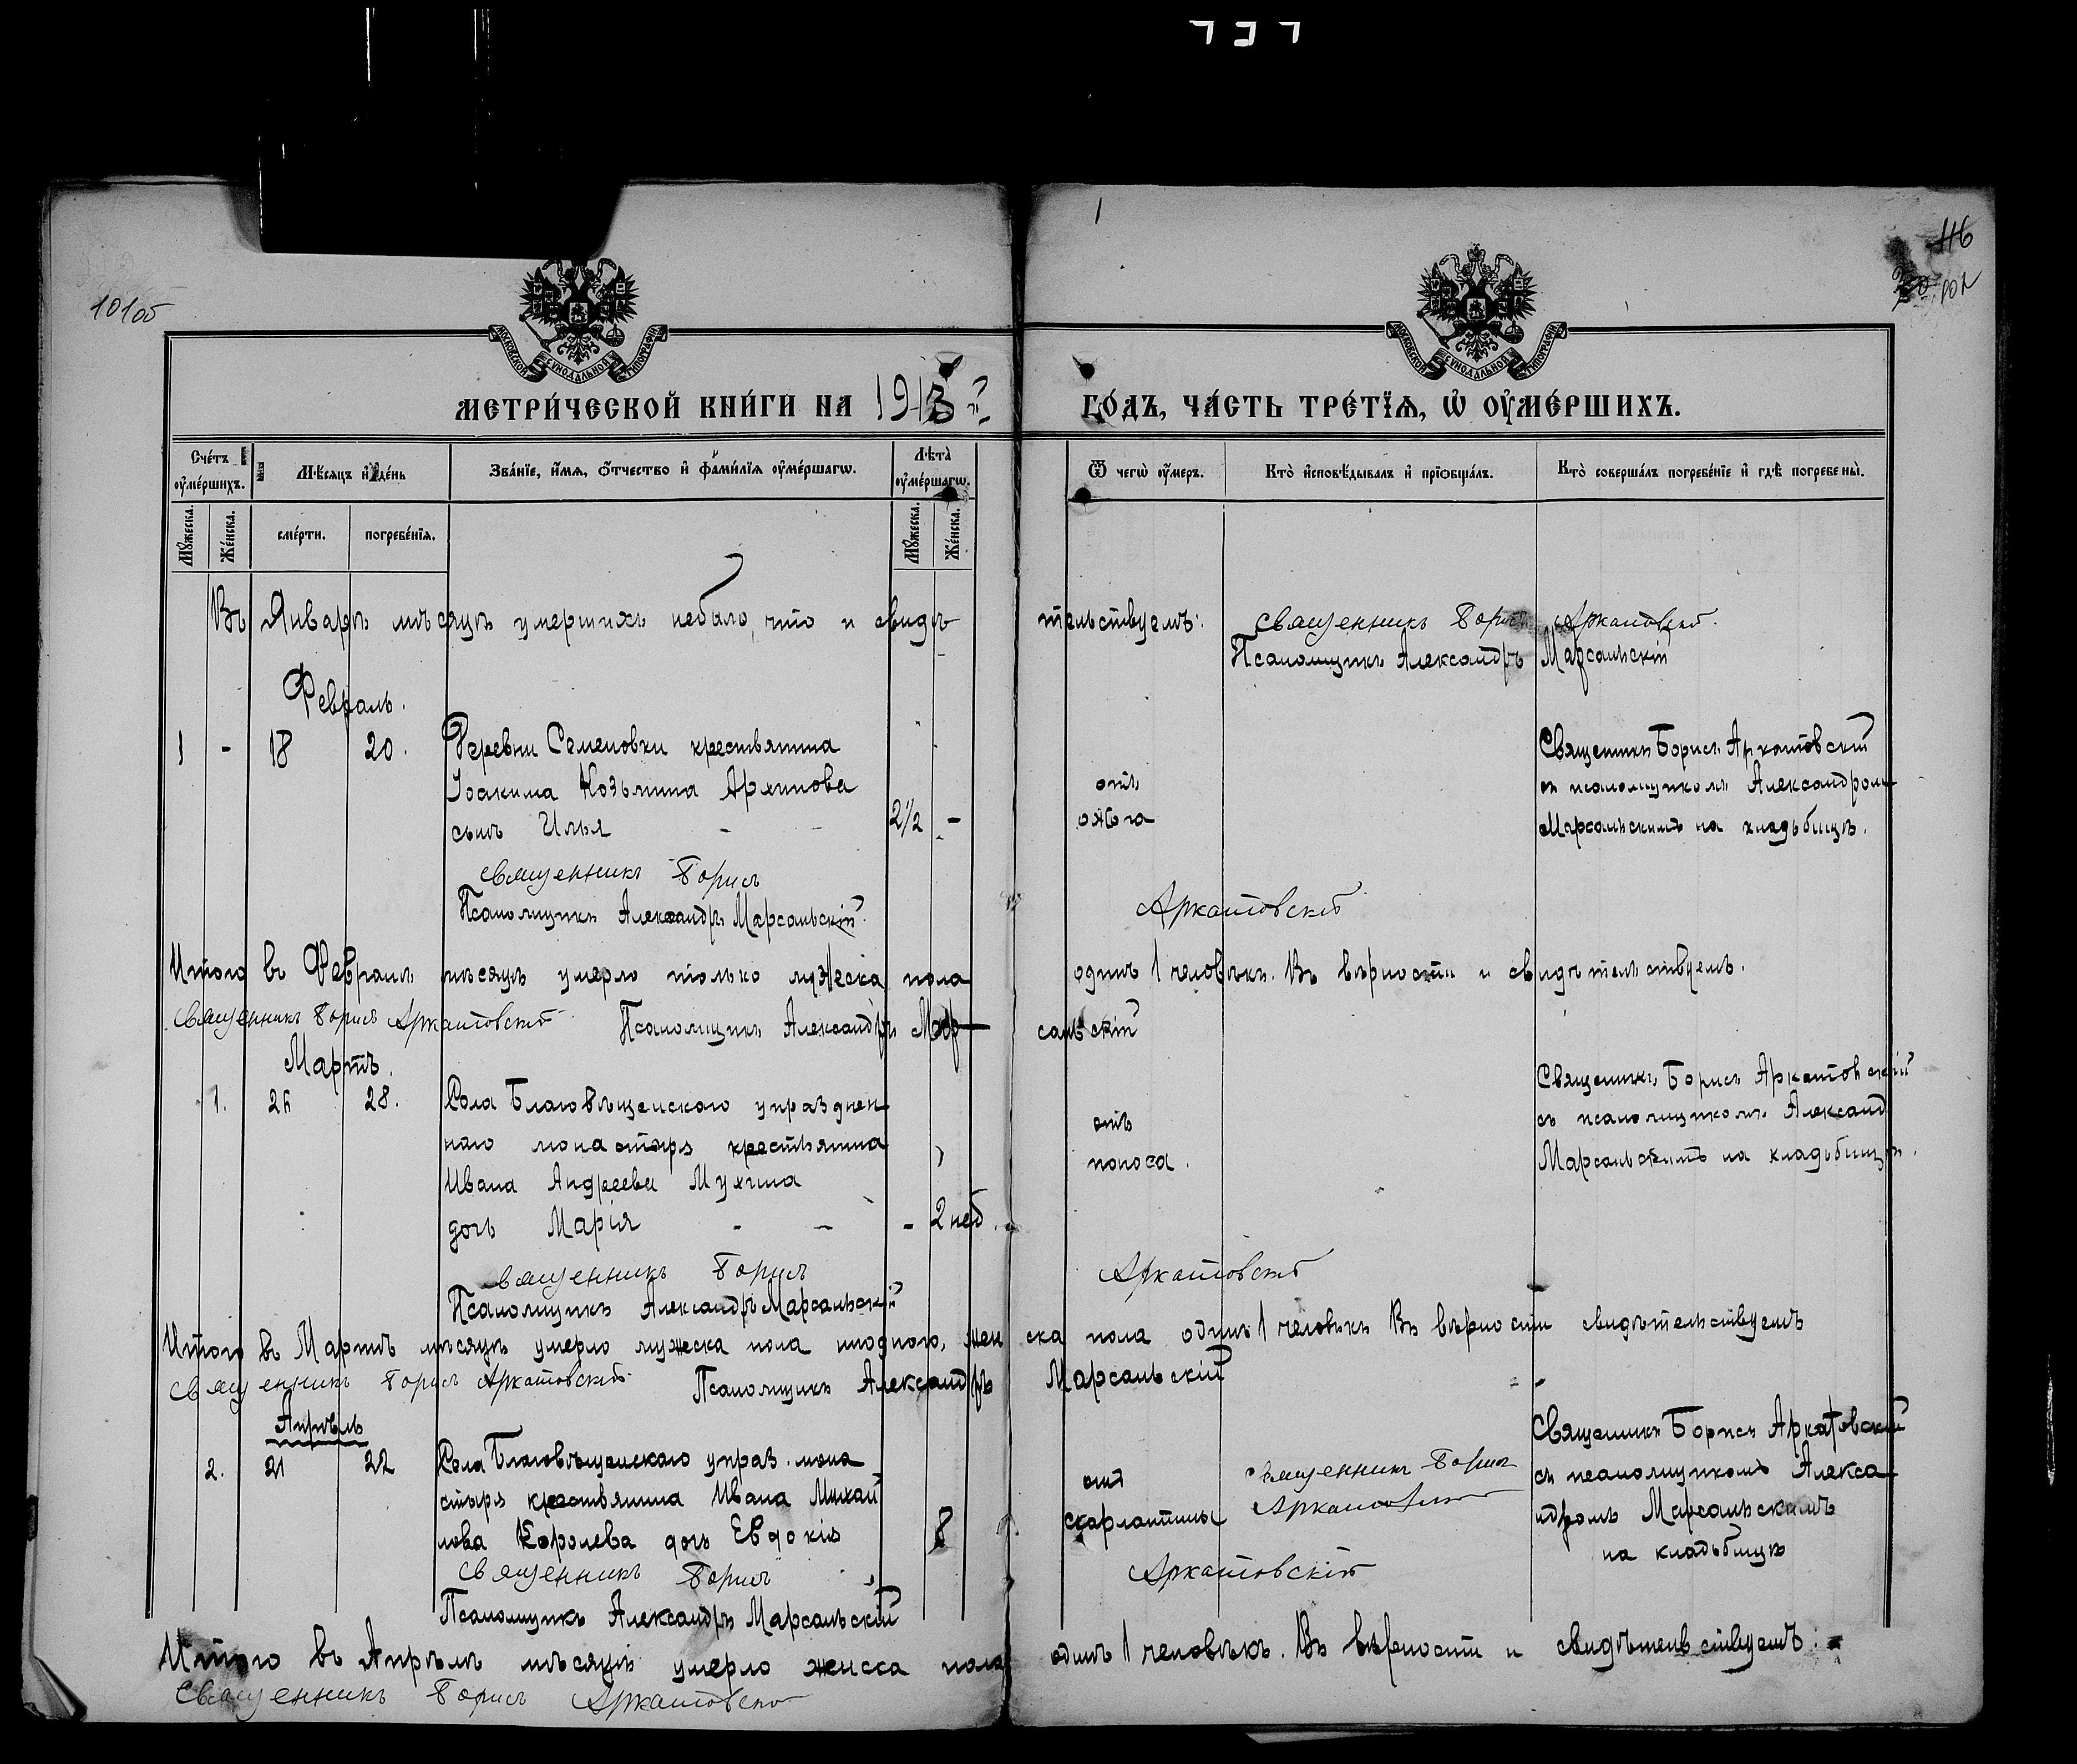 101об
116
МОСКОВСКОЙ СУНОДАЛЬНОЙ ТИПОГРАФІИ
МОСКОВСКОЙ СУНОДАЛЬНОЙ ТИПОГРАФІИ
МЕТРИ́ЧЕСКОЙ КНИ́ГИ НА 1913 ГО́ДЪ, ЧА́СТЬ ТРЕ́ТЇѦ, Ѡ҆ ОУ҆МЕ́РШИХЪ.
Сче́тъ оу҆ме́ршихъ.
Мѣ́сяцъ и҆ де́нь
Зва́нїе, и҆́мѧ, ѻ҆́тчество и҆ фами́лїѧ оу҆ме́ршагѡ.
Лѣ́та оу҆ме́ршагѡ.
Ѿ чегѡ̀ оу҆́меръ.
Кто̀ и҆сповѣ́дывалъ и҆ прїѡбща́лъ.
Кто̀ соверша́лъ погребе́нїе и҆ гдѣ̀ погребены̀.
Мꙋ́жеска.
Же́нска.
сме́рти.
погребе́нїѧ.
Мꙋ́жеска.
Же́нска.
Въ Январѣ мѣсяцѣ умершихъ небыло, что и свидѣтельствуемъ: Священникъ Борисъ Аркатовскій.
Псаломщикъ Александръ Марсальскій
Февраль.
1 - 18 20. Деревни Семеновки крестьянина
Іоакима Козьмина Архипова
сынъ Илья - - 2 1/2 -
отъ
ожога
Священникъ Борисъ Аркатовскій
съ псаломщикомъ Александромъ
Марсальскимъ на кладьбищѣ.
Священникъ Борисъ Аркатовскій
Псаломщикъ Александръ Марсальскій.
Итого въ Февралѣ мѣсяцѣ умерло только мужеска пола одинъ 1 человѣкъ. Въ вѣрности и свидѣтельствуемъ.
Священникъ Борисъ Аркатовскій Псаломщикъ Александръ Марсальскій
Мартъ.
1. 26 28. Села Благовѣщенскаго упразднен
наго монастыря крестьянина
Ивана Андреева Мухина
дочь Марія - - - 2 нед.
отъ
поноса.
Священникъ Борисъ Аркатовскій
съ псаломщикомъ Александ
Марсальскимъ на кладьбищѣ.
Священникъ Борисъ Аркатовскій
Псаломщикъ Александръ Марсальскій
Итого въ Мартѣ мѣсяцѣ умерло мужеска пола ниодного, женска пола одинъ 1 человѣкъ Въ вѣрности свидѣтельствуемъ
Священникъ Борисъ Аркатовскій. Псаломщикъ Александръ Марсальскій
Апрѣль
2. 21 22 Села Благовѣщенскаго упраз. мона
стыря крестьянина Ивана Михай
лова Королева дочь Евдокія 8
отъ
скарлатины
Священникъ Борисъ
Аркатовскій
Священникъ Борисъ Аркатовскій
съ псаломщикомъ Алекса
ндромъ Марсальскимъ
на кладьбищѣ
Священникъ Борисъ Аркатовскій
Псаломщикъ Александръ Марсальскій
Итого въ Апрѣлѣ мѣсяцѣ умерло женска пола одинъ 1 человѣкъ. Въ вѣрности и свидѣтельствуемъ.
Священникъ Борисъ Аркатовскій